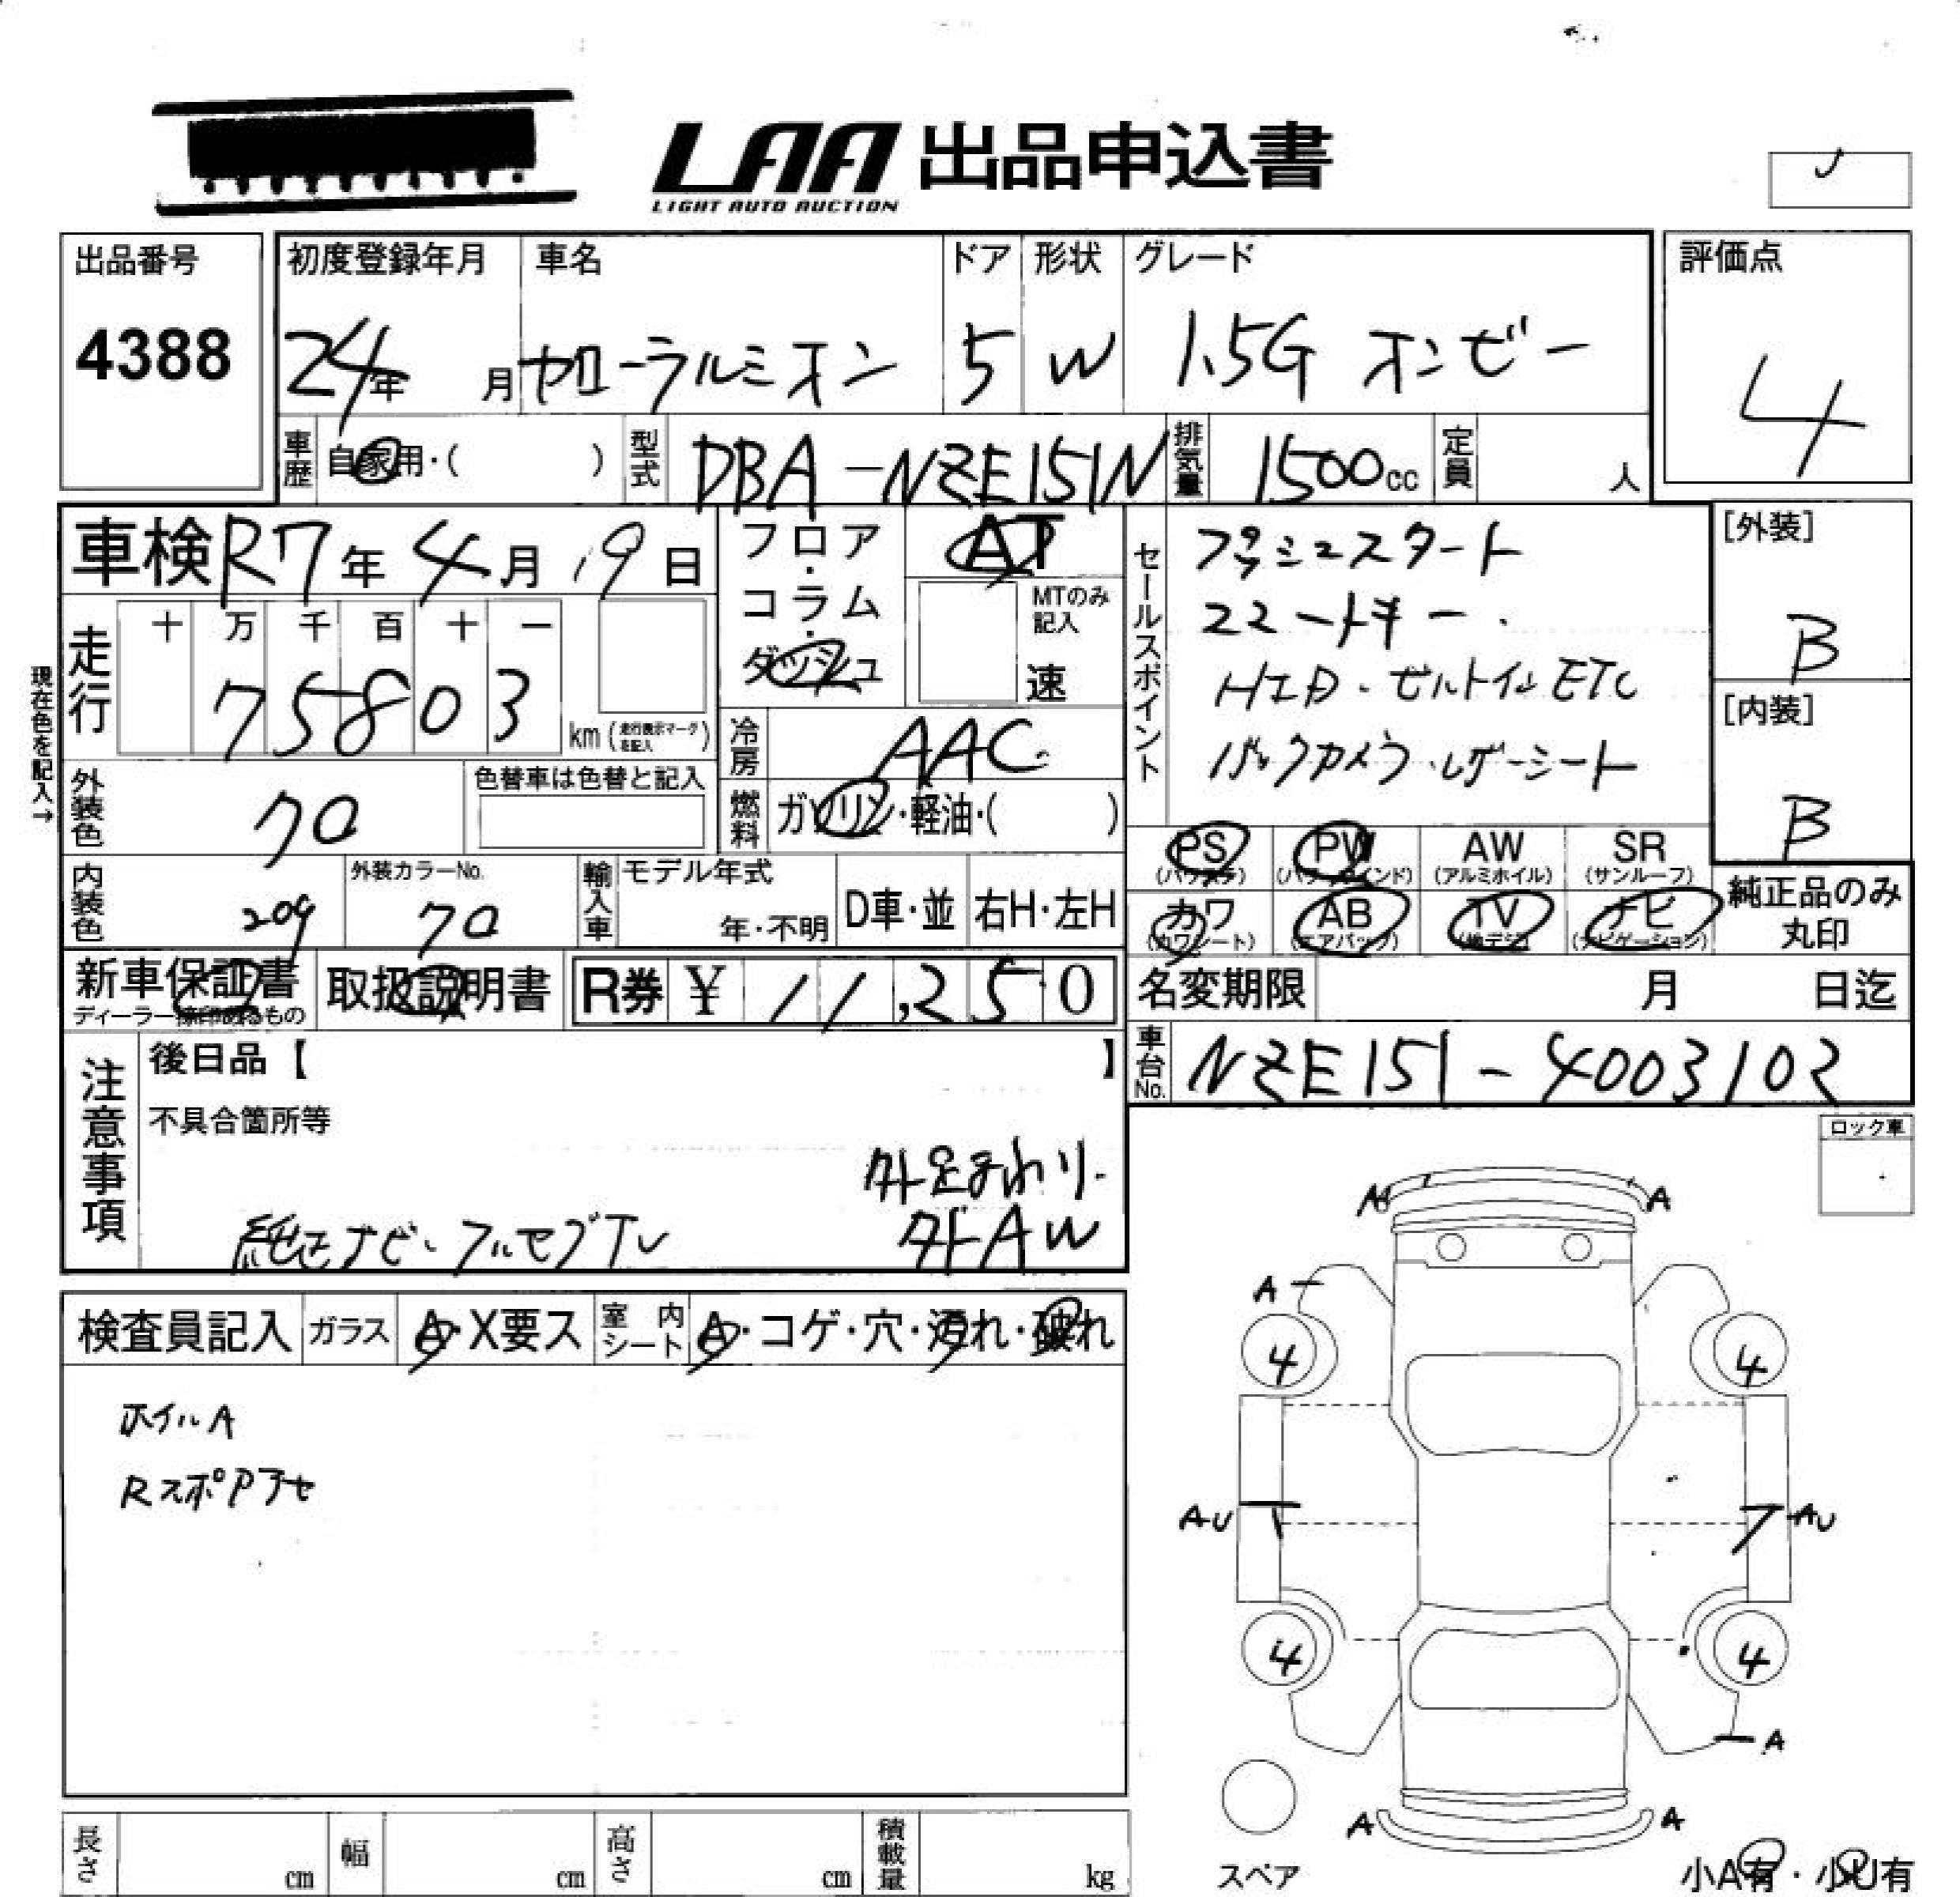 LAA 出品申込書
LIGHT AUTO AUCTION
出品番号
4388
初度登録年月
24年 月
車名
カローラルミオン
ドア
5
形状
W
グレード
1.5G オンビー
評価点
4
車歴 自家用・( )
型式 DBA-NZE151N
排気量 1500cc
定員 人
車検 R7年 4月 19日
現在色を記入→
走行
十 万 千 百 十 一
75803
km (走行表示マークを記入)
外装色 70
色替車は色替と記入
内装色 209
外装カラーNo.
70
フロア・コラム・ダッシュ
AT
MTのみ記入
速
冷房 AAC
燃料 ガソリン・軽油・( )
輸入車
モデル年式
年・不明
D車・並
右H・左H
セールスポイント
プッシュスタート
スマートキー
HID・ビルトインETC
バックカメラ・レザーシート
[外装]
B
[内装]
B
PS
(パワステ)
PW
(パワーウインド)
AW
(アルミホイル)
SR
(サンルーフ)
カワ
(カワシート)
AB
(エアバッグ)
TV
(地デジ)
ナビ
(ナビゲーション)
純正品のみ丸印
新車保証書
ディーラー捺印あるもの
取扱説明書
R券 ¥ 11,250
名変期限 月 日迄
車台No. NZE151-4003102
注意事項
後日品【 】
不具合箇所等
外足まわり
純正ナビ・フルセグTV
外AW
ロック車
検査員記入
ガラス A・X要ス
室内シート A・コゲ・穴・汚れ・破れ
ホイルA
RスポアセA
A A
A
4 4
AU AU
4 4
A
A A
スペア
小A有・小U有
長さ cm
幅 cm
高さ cm
積載量 kg